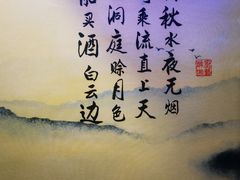 秋水夜无烟
乘流直上天
洞庭赊月色
买酒白云边